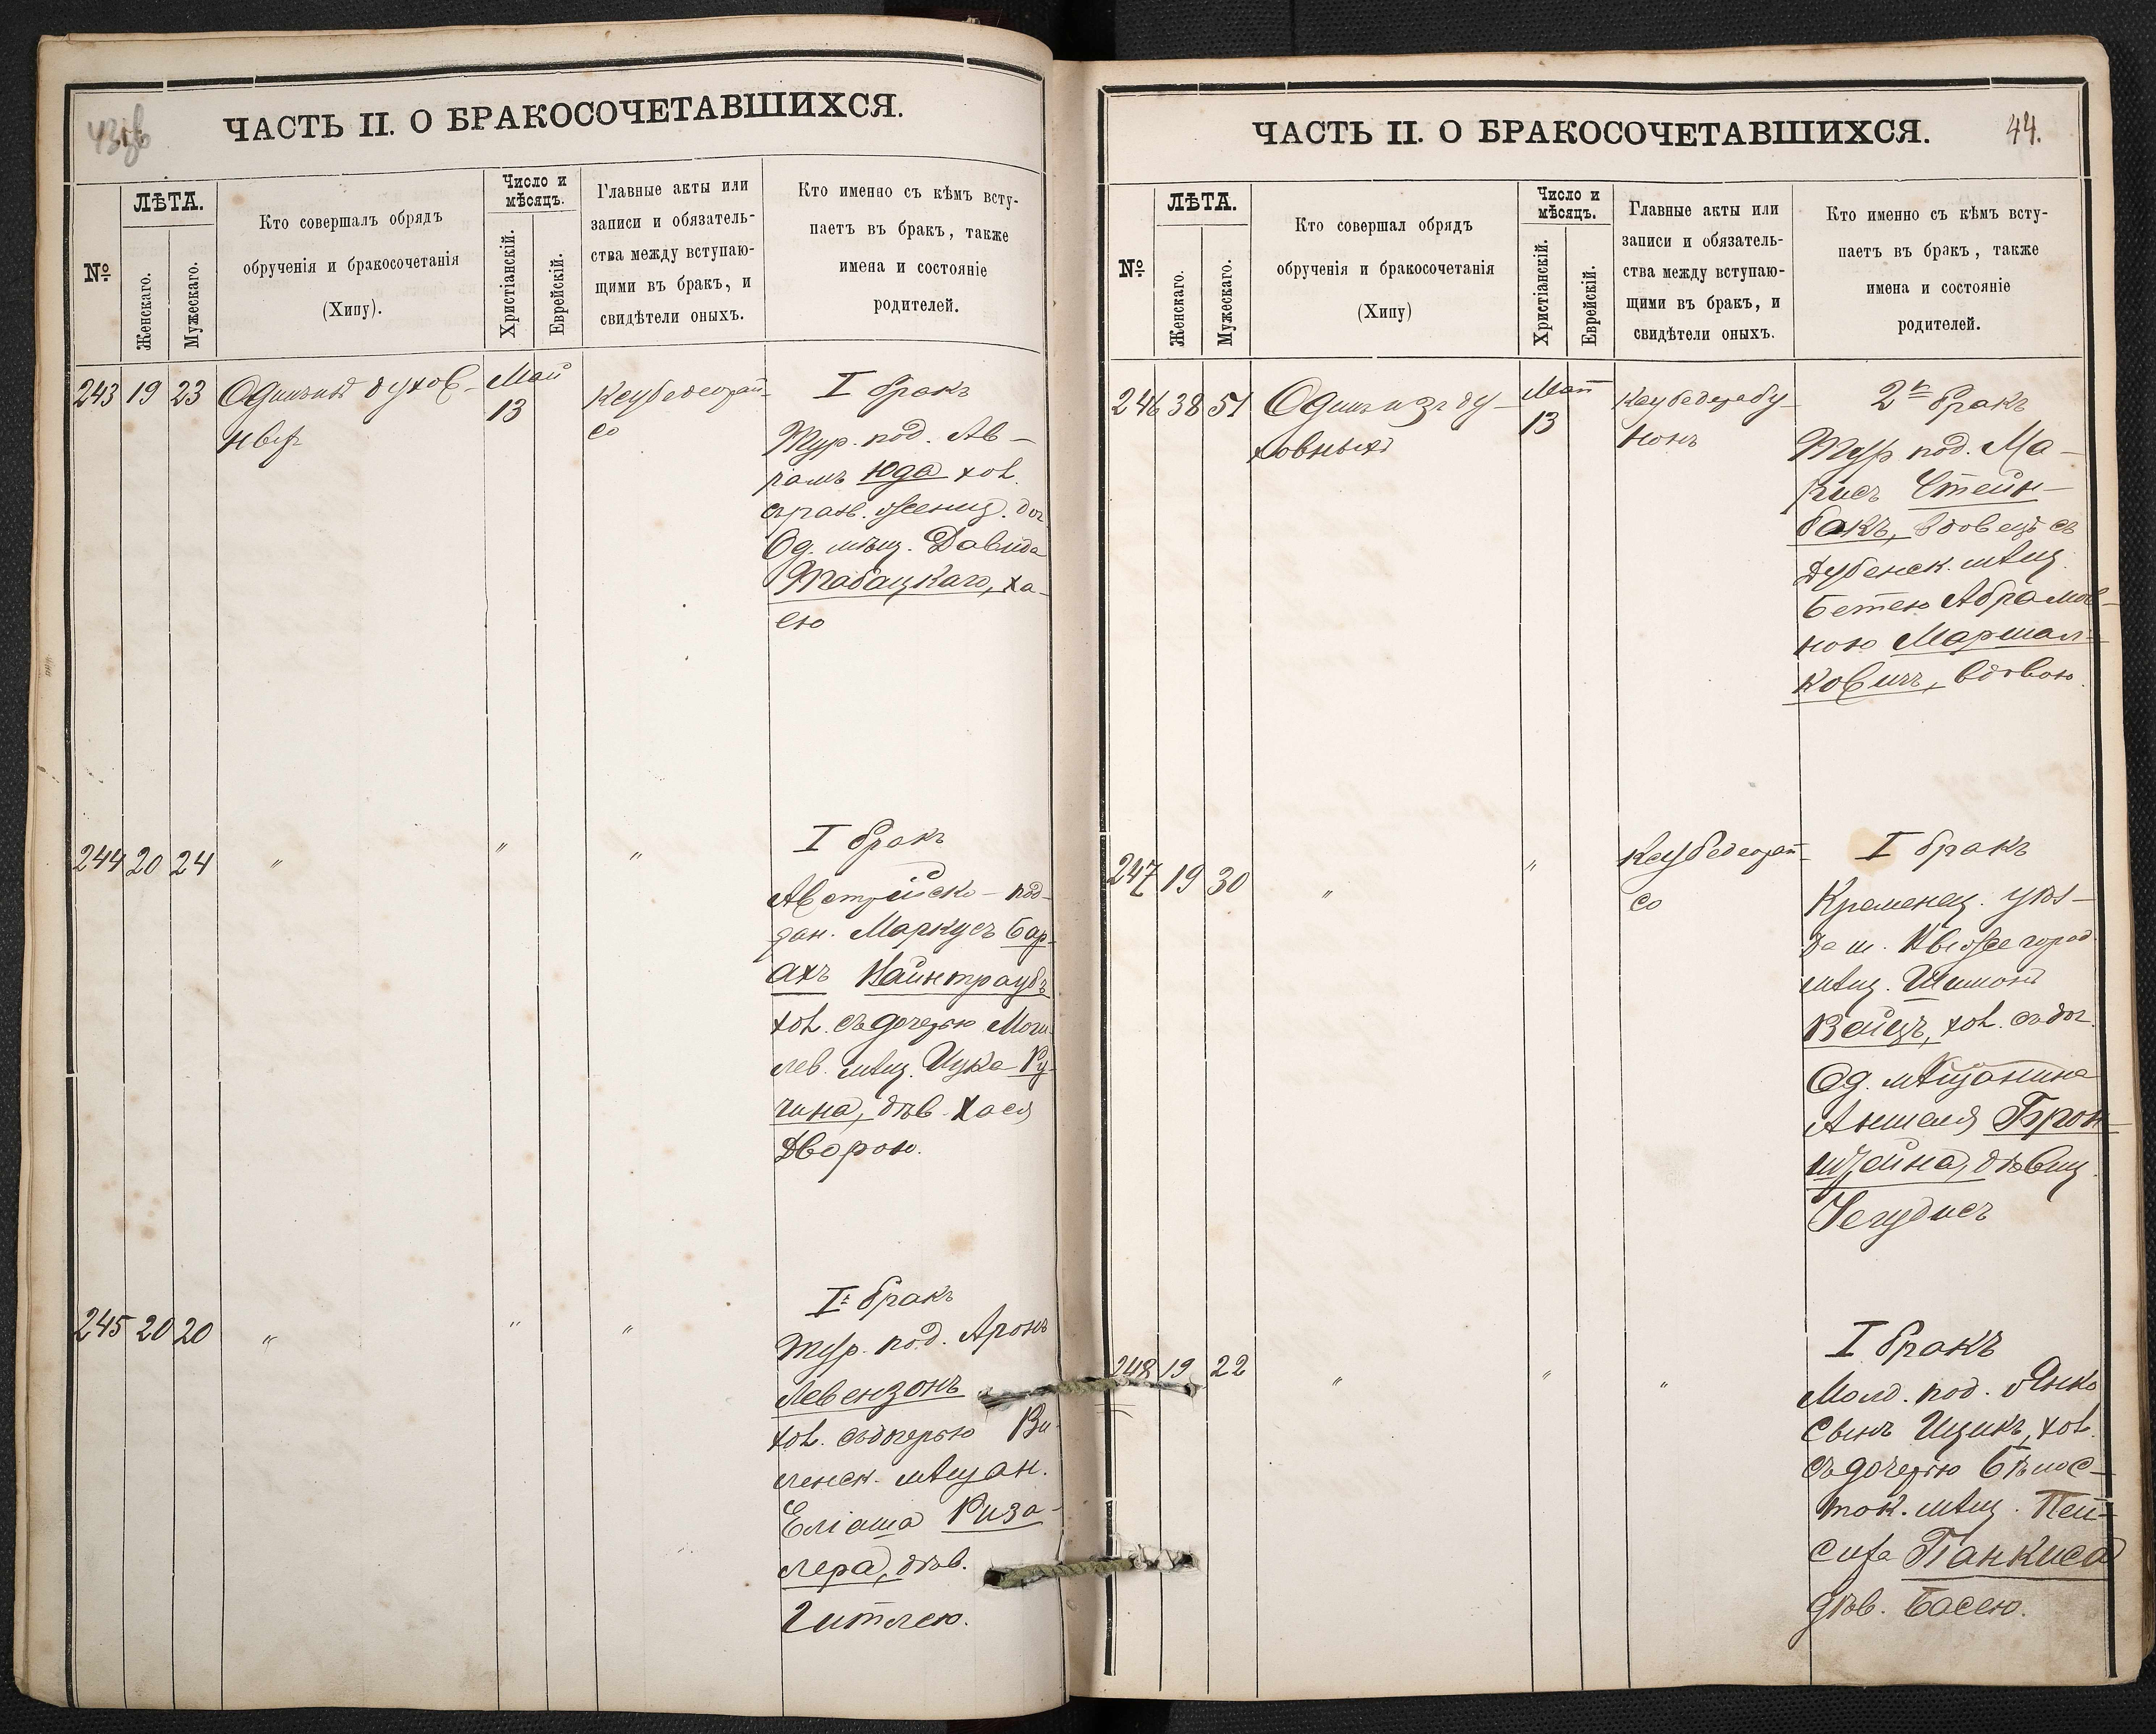 43об
ЧАСТЬ II. О БРАКОСОЧЕТАВШИХСЯ.
№
ЛѢТА.
Женскаго.
Мужескаго.
Кто совершалъ обрядъ
обрученія и бракосочетанія
(Хипу).
Число и
мѣсяцъ.
Христіанскій.
Еврейскій.
Главные акты или
записи и обязатель-
ства между вступаю-
щими въ бракъ, и
свидѣтели оныхъ.
Кто именно съ кѣмъ всту-
паетъ въ бракъ, также
имена и состояніе
родителей.
243 19 23
Май
13
со
I бракъ
Тур. под. Ав-
рамъ Юда хол.
Од. мѣщ. Давида
Табацкаго, Ха-
ею
244 20 24 " " "
I бракъ
Австрійско-под-
дан. Маркусъ Бар-
ахъ Вайнтраубъ
хол. съ дочерью Моги-
лев. мѣщ. Ицка Ру-
чина, дѣв. Хася
Дворою.
245 20 20 " " "
I бракъ
Тур. под. Аронъ
Левензонъ
хол. съ дочерью Ви-
ленск. мѣщан.
Еліаша Риза-
лера, дѣв.
Гитлею.
ЧАСТЬ II. О БРАКОСОЧЕТАВШИХСЯ.
44.
№
ЛѢТА.
Женскаго.
Мужескаго.
Кто совершал обрядъ
обрученія и бракосочетанія
(Хипу)
Число и
мѣсяцъ.
Христіанскій.
Еврейскій.
Главные акты или
записи и обязатель-
ства между вступаю-
щими въ бракъ, и
свидѣтели оныхъ.
Кто именно съ кѣмъ всту-
паетъ въ бракъ, также
имена и состояніе
родителей.
246 38 51
Одинъ изъ ду-
ховныхъ
Май
13
2й бракъ
Тур. под. Ма-
Стейн-
бакъ, вдовецъ съ
Дубенск. мѣщ.
Бетею Абрамов-
ною Маршал-
ковичъ, вдовою.
247 19 30 " "
со
I бракъ
Кременец. уѣз-
да м.
мѣщ. Шимонъ
Вайцъ, хол. съ доч.
Од. мѣщанина
Аншеля Брон-
штейна, дѣвиц.
Иегудисъ
248 19 22 " " "
I бракъ
Молд. под. Янко
сынъ Ицикъ, хол.
съ дочерью Бѣлос-
ток. мѣщ. Пей-
Панкиса
дѣв. Басею.